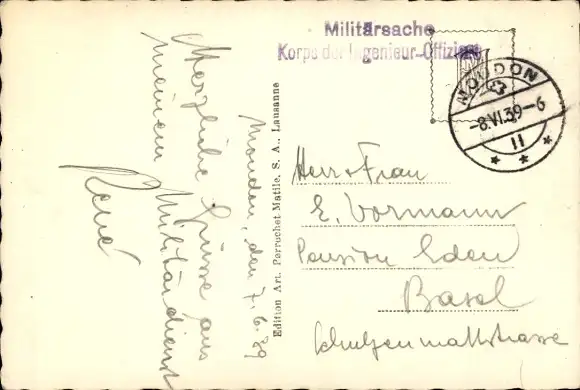 Militärsache
Korps der Ingenieur-Offiziere
MOUDON
-8.VI.39-6
11
Moudon, den 7.6.39
Herzliche Grüsse aus
meinem Militärdienst
René
Edition Art. Perrochet Matile, S. A., Lausanne
Herr & Frau
E. Vormann
Pension Eden
Basel
Schützenmattstrasse